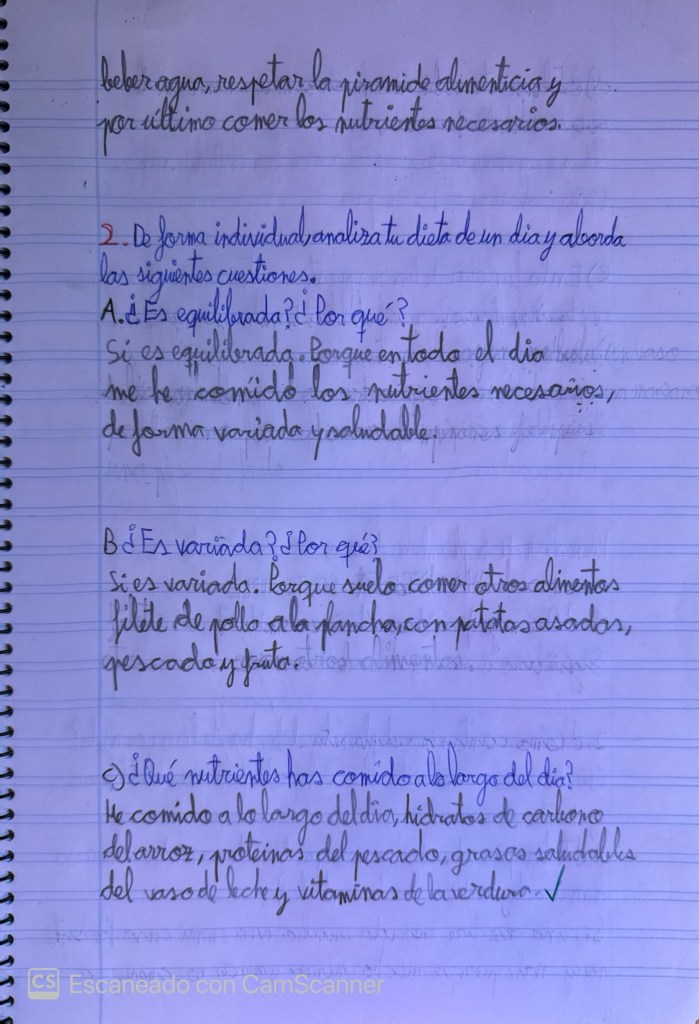 beber agua, respetar la piramide alimenticia y
por último comer los nutrientes necesarios.
2. De forma individual, analiza tu dieta de un dia y aborda
las siguientes cuestiones.
A. ¿Es equilibrada? ¿Por qué?
Si es equilibrada. Porque en todo el dia
me he comido los nutrientes necesarios,
de forma variada y saludable.
B ¿Es variada? ¿Por qué?
Si es variada. Porque suelo comer otros alimentos
filete de pollo a la plancha, con patatas asadas,
pescado y fruta.
c) ¿Qué nutrientes has comido a lo largo del dia?
He comido a lo largo del dia, hidratos de carbono
del arroz, proteinas del pescado, grasas saludables
del vaso de leche y vitaminas de la verdura. ✓
CS Escaneado con CamScanner